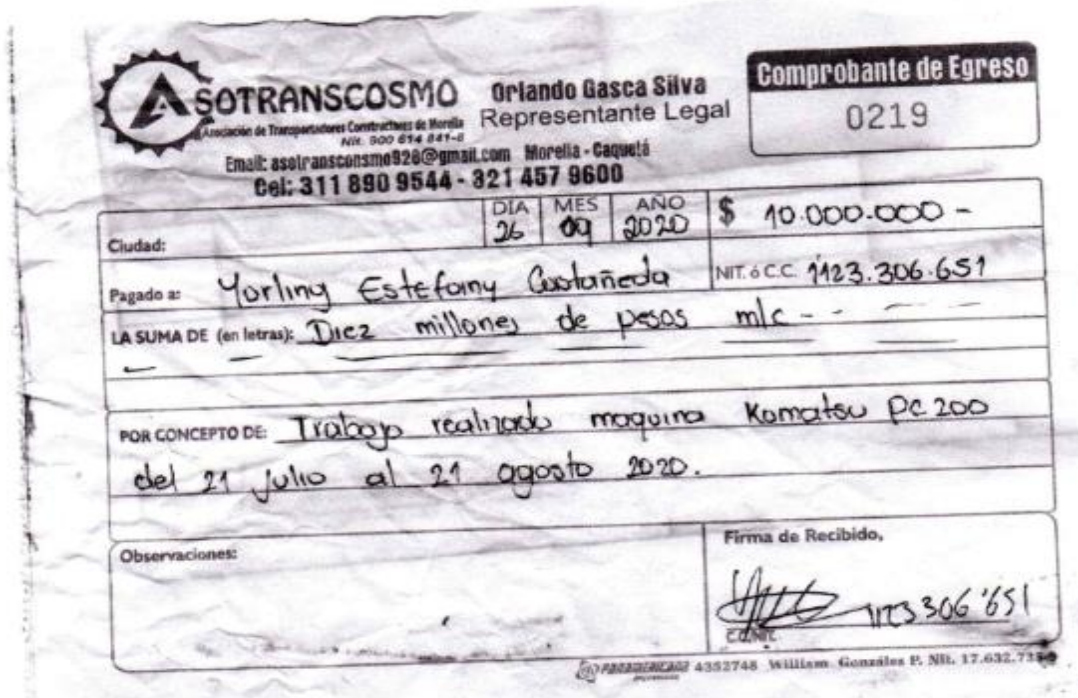 ASOTRANSCOSMO
Asociación de Transportadores Constructores de Morelia
Nit. 900 614 841-8
Orlando Gasca Silva
Representante Legal
Email: asotransconsmo928@gmail.com Morelia - Caquetá
Cel: 311 890 9544 - 321 457 9600
Comprobante de Egreso
0219
Ciudad:
DIA MES AÑO
26 09 2020
$ 10.000.000 -
Pagado a: Yorling Estefany Castañeda
NIT. ó C.C. 1123.306.651
LA SUMA DE (en letras): Diez millones de pesos m/c - -
POR CONCEPTO DE: Trabajo realizado maquina Komatsu PC 200
del 21 julio al 21 agosto 2020.
Observaciones:
Firma de Recibido,
1123306'651
C.C./NIT.
4352748 William Gonzáles P. Nit. 17.632.73